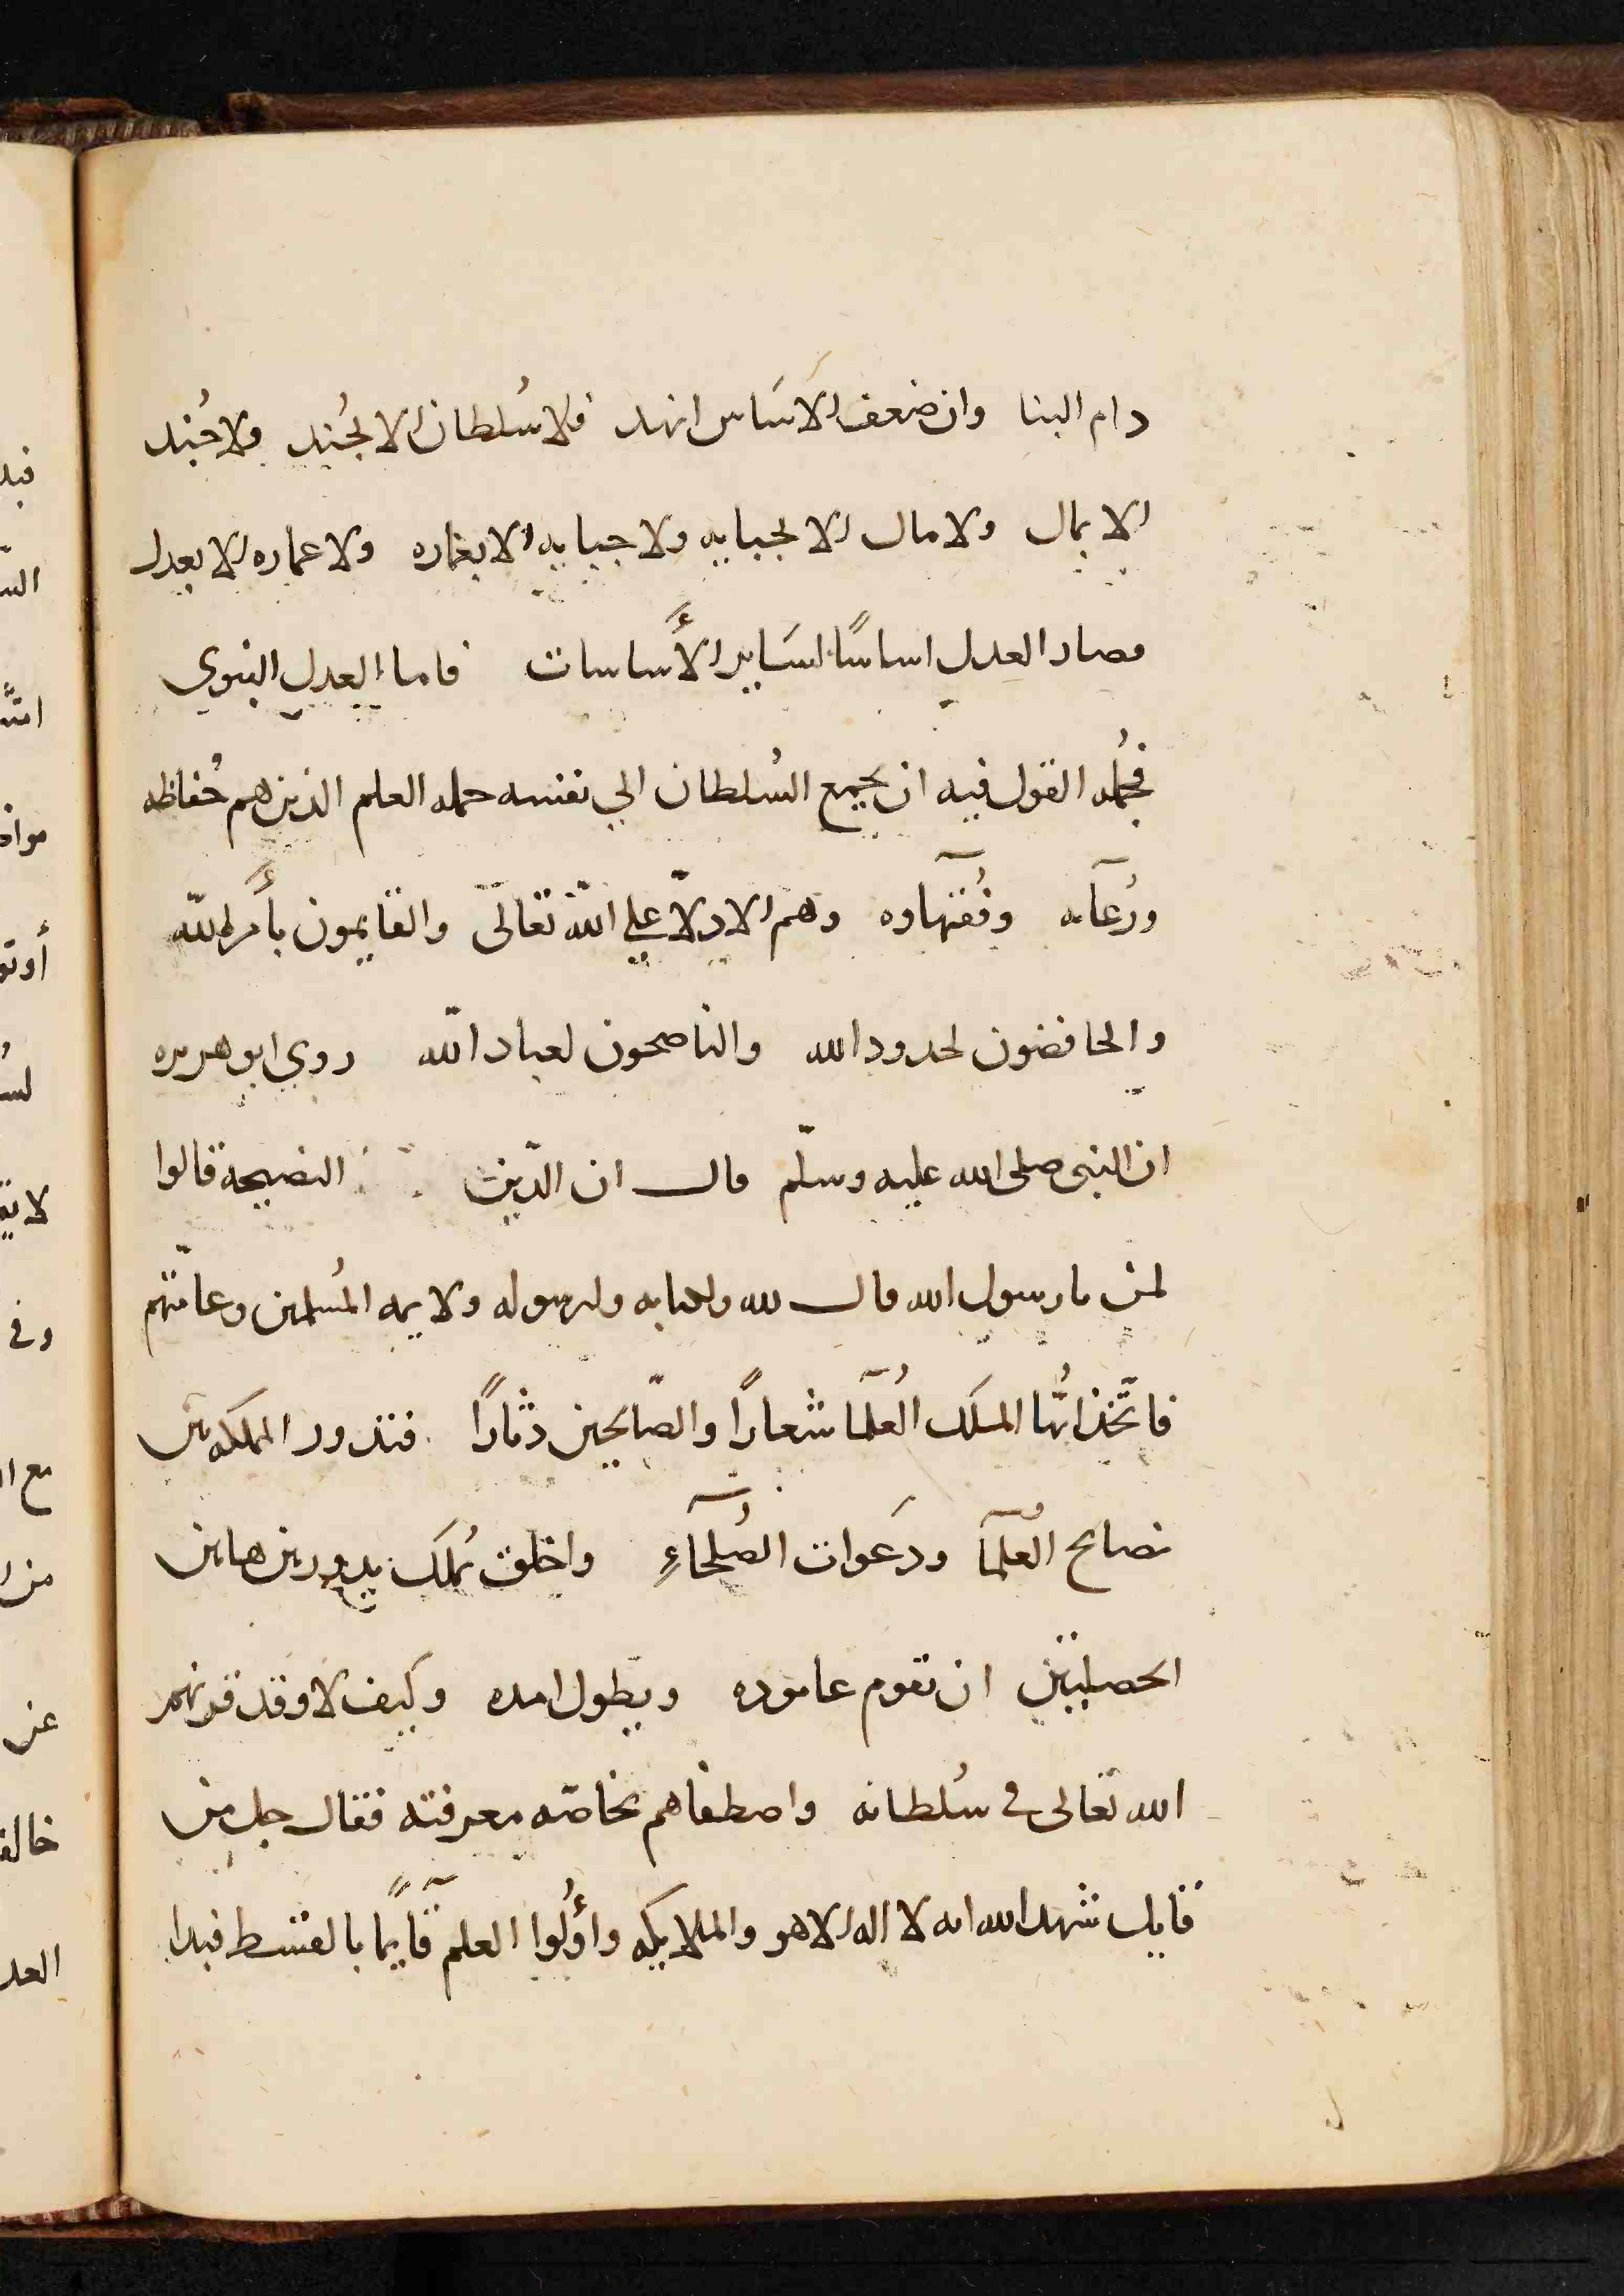 دام البنا وان ضعف الاسَاس انهد فلا سُلطان الا بجُند ولا جُند
الا بمال ولا مال الا بجبايه ولا جبايه الا بعماره ولا عماره الا بعدل
فصار العدل اساسًا لسَاير الأَساسات فاما العدل النبوي
فجُمله القول فيه ان يجمع السُلطان الي نفسه حمله العلم الذين هم حُفاظه
ورُعآته وفُقهآوه وهم الادلاّ علي اللّه تعالَى والقايمون بأَمر اللّه
والحافضون لحدود الله والناصحون لعباد اللّه روي ابو هريره
ان النبى صلى الله عليه وسلّم قال ان الدّين النصيحة قالوا
لمن يا رسول الله قال لله ولكتابه ولرسوله ولايمه المُسلمين وعامّتهم
فاتَّخذ ايُّها الملَك العُلمآ شعارًا والصّالحين دثارًا فتدور المملكه بين
نصايح العُلمآ ودعَوات الصُلحآءِ واخلق بمُلك يدور بين هاتين
الخصلتين ان تقوم عاموده ويطول امده وكيف لا وقد قرنهم
الله تعالى في سُلطانه واصطفاهم بخاصّه معرفته فقال جل من
قايل شهد الله انه لا اله الا هو والملايكه واؤُلوا العلم قآيمًا بالقسط فبدا